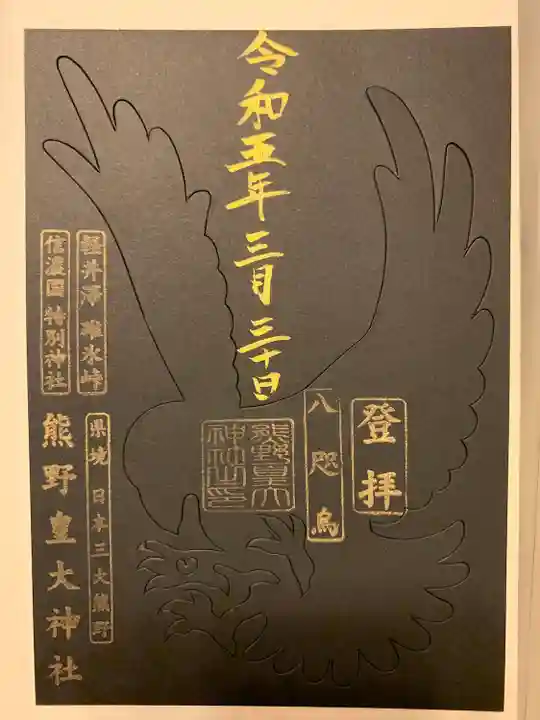 令和五年 三月 三十日
登拝
八咫烏
熊野皇大神社之印
県境 日本三大熊野
軽井澤 碓氷峠
信濃国 特別神社
熊野皇大神社